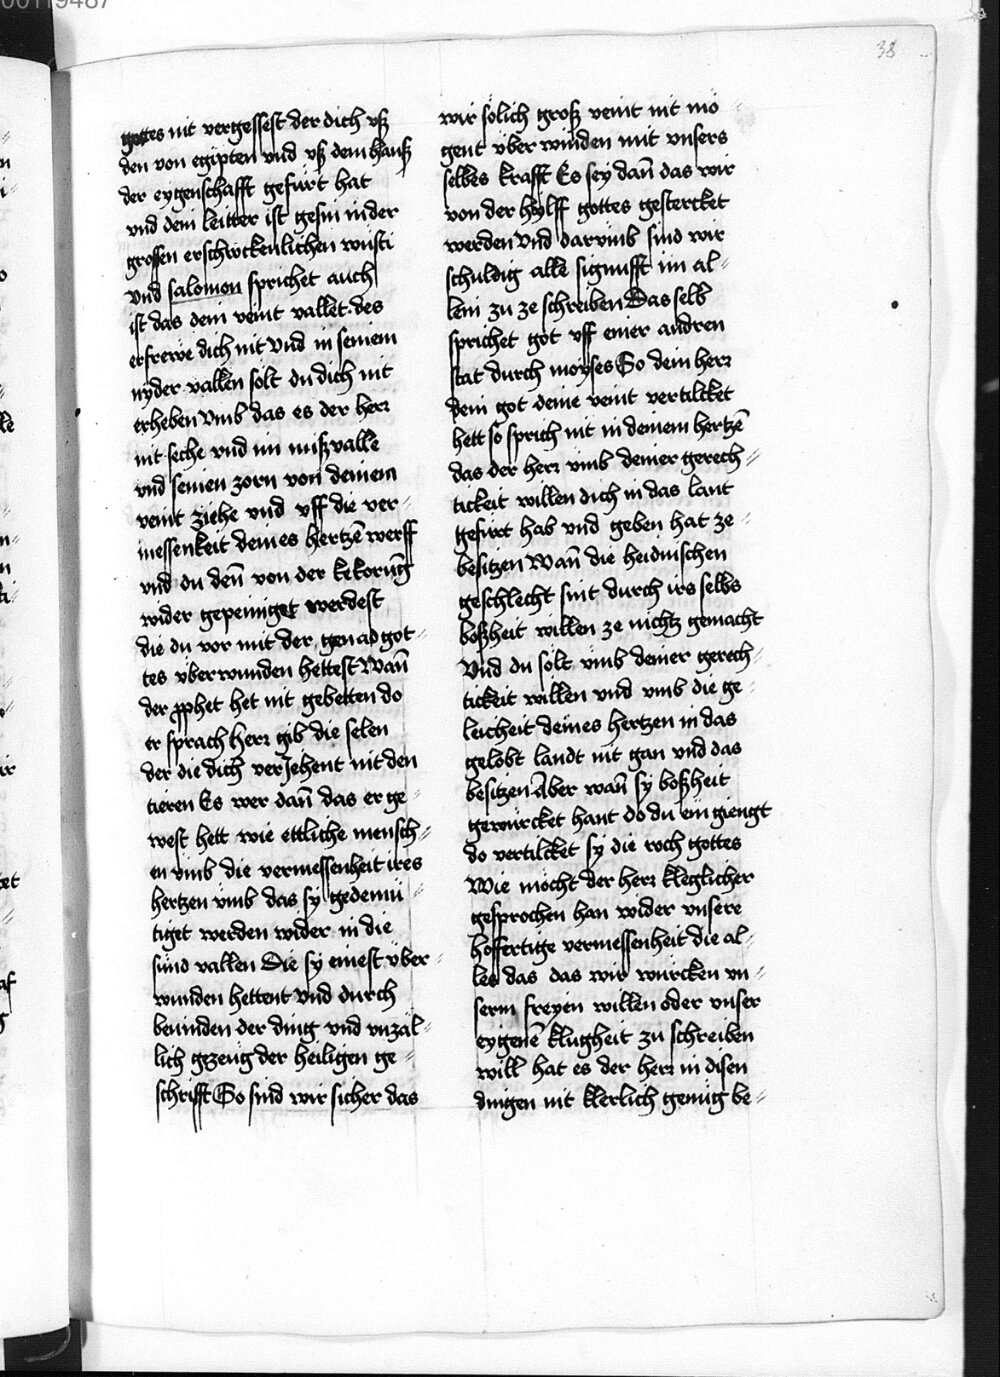 00119487
38
gottes nit vergessest der dich vß
den von egipten vnd vß dem hauß
der eygenschafft gefürt hat
vnd dein leitter ist gesin in der
grossen erschrockenlichen wüsti
vnd salomon sprichet auch
ist das dein veint vallet des
erfrewe dich nit vnd in seinem
nyder vallen solt du dich nit
erheben vmb das es der herr
nit seche vnd im mißvalle
vnd seinen zorn von deinem
veint ziehe vnd vff die ver-
messenkeit deines hertzē werff
vnd du deñ von der bekorūg
wider gepeiniget werdest
die du vor mit der genad got-
tes überwunden hettest Wañ
der prophet het nit gebetten do
er sprach herr gib die selen
der die dich verJehent nit den
tieren Es wer dañ das er ge-
west hett wie ettliche mensch-
en vmb die vermessenheit ires
hertzen vmb das sy gedemü-
tiget werden wider in die
sünd vallen Die sy einest über-
wunden hettent vnd durch
beuinden der ding vnd vnzal-
lich gezeüg der heiligen ge-
schrifft So sind wir sicher das
wir solich groß veint nit mö
gent überwinden mit vnsers
selbes krafft Es sey dañ das wir
von der hylff gottes gestercket
werden vnd darvmb sind wir
schuldig alle signufft im al-
lein zu ze schreiben Das selb
sprichet got vff einer andren
stat durch moyses So dein herr
dein got deine veint vertilcket
hett so sprich nit in deinem hertzē
das der herr vmb deiner gerech-
tickeit willen dich in das lant
gefürt hab vnd geben hat ze-
besitzen Wañ die heidnischen
geschlecht sint durch irs selbs
boßheit willen ze nichtz gemacht
vnd du solt vmb deiner gerech-
tickeit willen vnd vmb die ge-
leicheit deines hertzen in das
gelobt landt nit gan vnd das
besitzen Aber wañ sy boßheit
gewürcket hant do du ein giengt
do vertilcket sy die roch gottes
Wie möcht der herr kleglicher
gesprochen han wider vnsere
hoffertige vermessenheit die al-
les das das wir würcken vn-
serm freyen willen oder vnser
eygenē klugheit zu schreiben
will hat es der herr in disen
dingen nit klerlich genüg be-